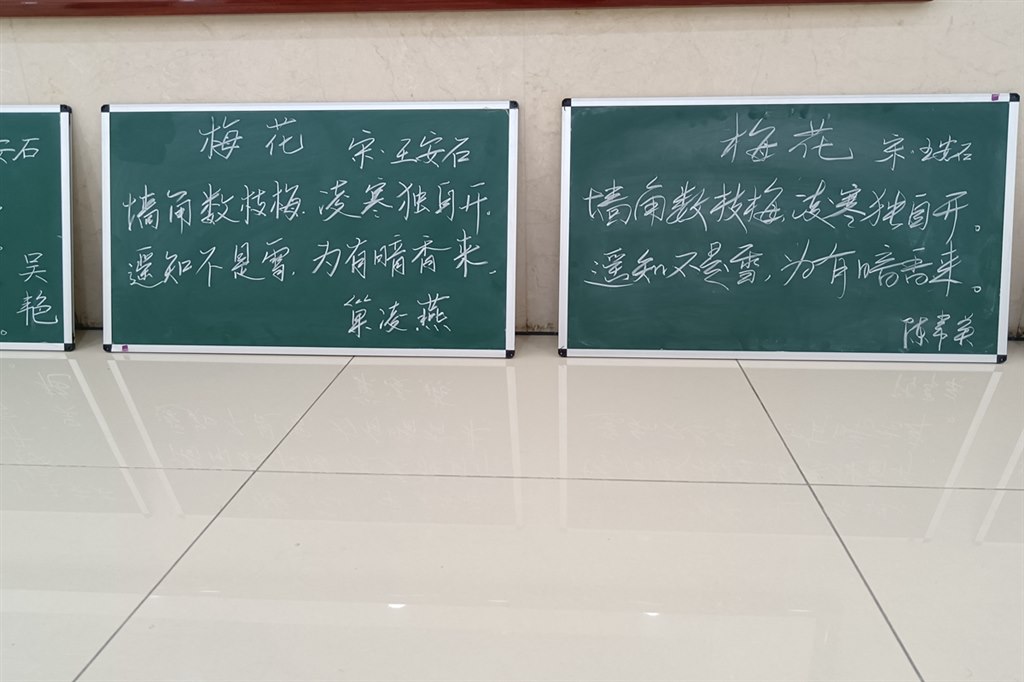 安石
。
吴
艳
梅花
宋·王安石
墙角数枝梅,凌寒独自开.
遥知不是雪,为有暗香来.
单凌燕
梅花
宋·王安石
墙角数枝梅,凌寒独自开。
遥知不是雪,为有暗香来。